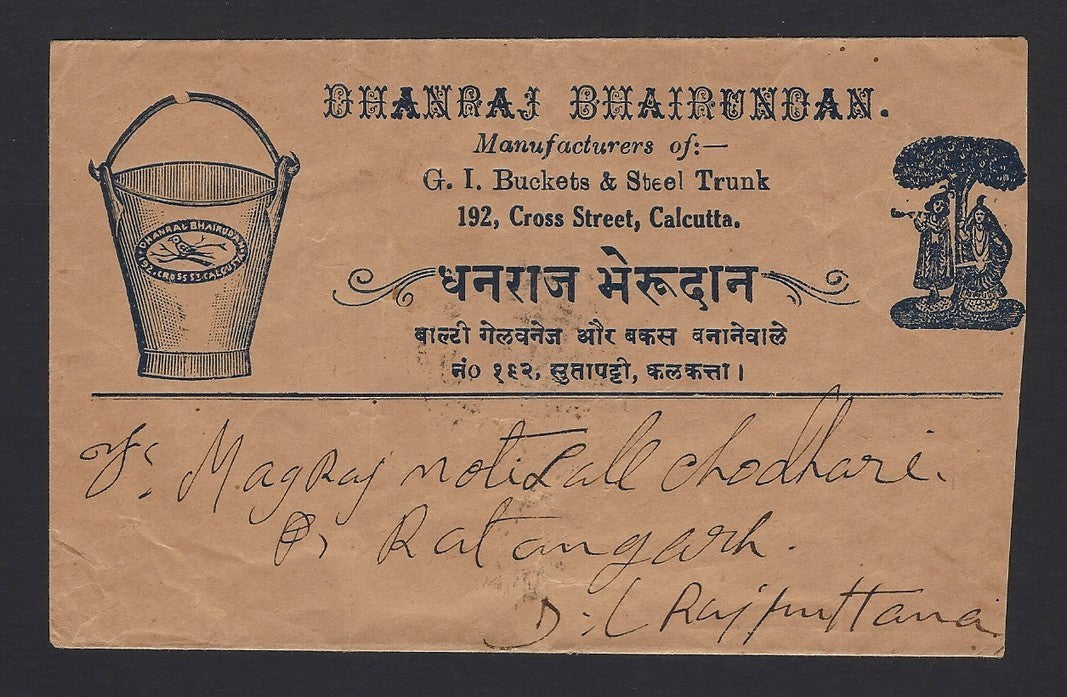 DHANRAJ BHAIRUNDAN.
Manufacturers of:—
G. I. Buckets & Steel Trunk
192, Cross Street, Calcutta.
DHANRAL BHAIRUDAN
192, CROSS ST. CALCUTTA
धनराज भेरूदान
बाल्टी गेलवनेज और बकस बनानेवाले
नं० १९२, सुतापट्टी, कलकत्ता।
Magraj motilall chodhari.
Ratangarh.
Rajputtana